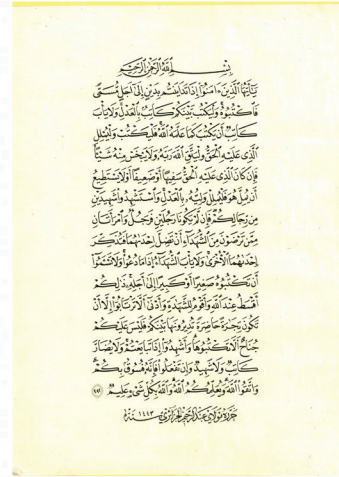 بِسْمِ اللَّهِ الرَّحْمَٰنِ الرَّحِيمِ
يَٰٓأَيُّهَا الَّذِينَ ءَامَنُوٓا۟ إِذَا تَدَايَنتُم بِدَيْنٍ إِلَىٰٓ أَجَلٍ مُّسَمًّى
فَٱكْتُبُوهُ وَلْيَكْتُب بَّيْنَكُمْ كَاتِبٌۢ بِٱلْعَدْلِ وَلَا يَأْبَ
كَاتِبٌ أَن يَكْتُبَ كَمَا عَلَّمَهُ ٱللَّهُ فَلْيَكْتُبْ وَلْيُمْلِلِ
ٱلَّذِى عَلَيْهِ ٱلْحَقُّ وَلْيَتَّقِ ٱللَّهَ رَبَّهُۥ وَلَا يَبْخَسْ مِنْهُ شَيْـًٔا
فَإِن كَانَ ٱلَّذِى عَلَيْهِ ٱلْحَقُّ سَفِيهًا أَوْ ضَعِيفًا أَوْ لَا يَسْتَطِيعُ
أَن يُمِلَّ هُوَ فَلْيُمْلِلْ وَلِيُّهُۥ بِٱلْعَدْلِ وَٱسْتَشْهِدُوا۟ شَهِيدَيْنِ
مِن رِّجَالِكُمْ فَإِن لَّمْ يَكُونَا رَجُلَيْنِ فَرَجُلٌ وَٱمْرَأَتَانِ
مِمَّن تَرْضَوْنَ مِنَ ٱلشُّهَدَآءِ أَن تَضِلَّ إِحْدَىٰهُمَا فَتُذَكِّرَ
إِحْدَىٰهُمَا ٱلْأُخْرَىٰ وَلَا يَأْبَ ٱلشُّهَدَآءُ إِذَا مَا دُعُوا۟ وَلَا تَسْـَٔمُوٓا۟
أَن تَكْتُبُوهُ صَغِيرًا أَوْ كَبِيرًا إِلَىٰٓ أَجَلِهِۦ ذَٰلِكُمْ
أَقْسَطُ عِندَ ٱللَّهِ وَأَقْوَمُ لِلشَّهَٰدَةِ وَأَدْنَىٰٓ أَلَّا تَرْتَابُوٓا۟ إِلَّآ أَن
تَكُونَ تِجَٰرَةً حَاضِرَةً تُدِيرُونَهَا بَيْنَكُمْ فَلَيْسَ عَلَيْكُمْ
جُنَاحٌ أَلَّا تَكْتُبُوهَا وَأَشْهِدُوٓا۟ إِذَا تَبَايَعْتُمْ وَلَا يُضَآرَّ
كَاتِبٌ وَلَا شَهِيدٌ وَإِن تَفْعَلُوا۟ فَإِنَّهُۥ فُسُوقٌۢ بِكُمْ
وَٱتَّقُوا۟ ٱللَّهَ وَيُعَلِّمُكُمُ ٱللَّهُ وَٱللَّهُ بِكُلِّ شَىْءٍ عَلِيمٌ
سنة ١٤١٣